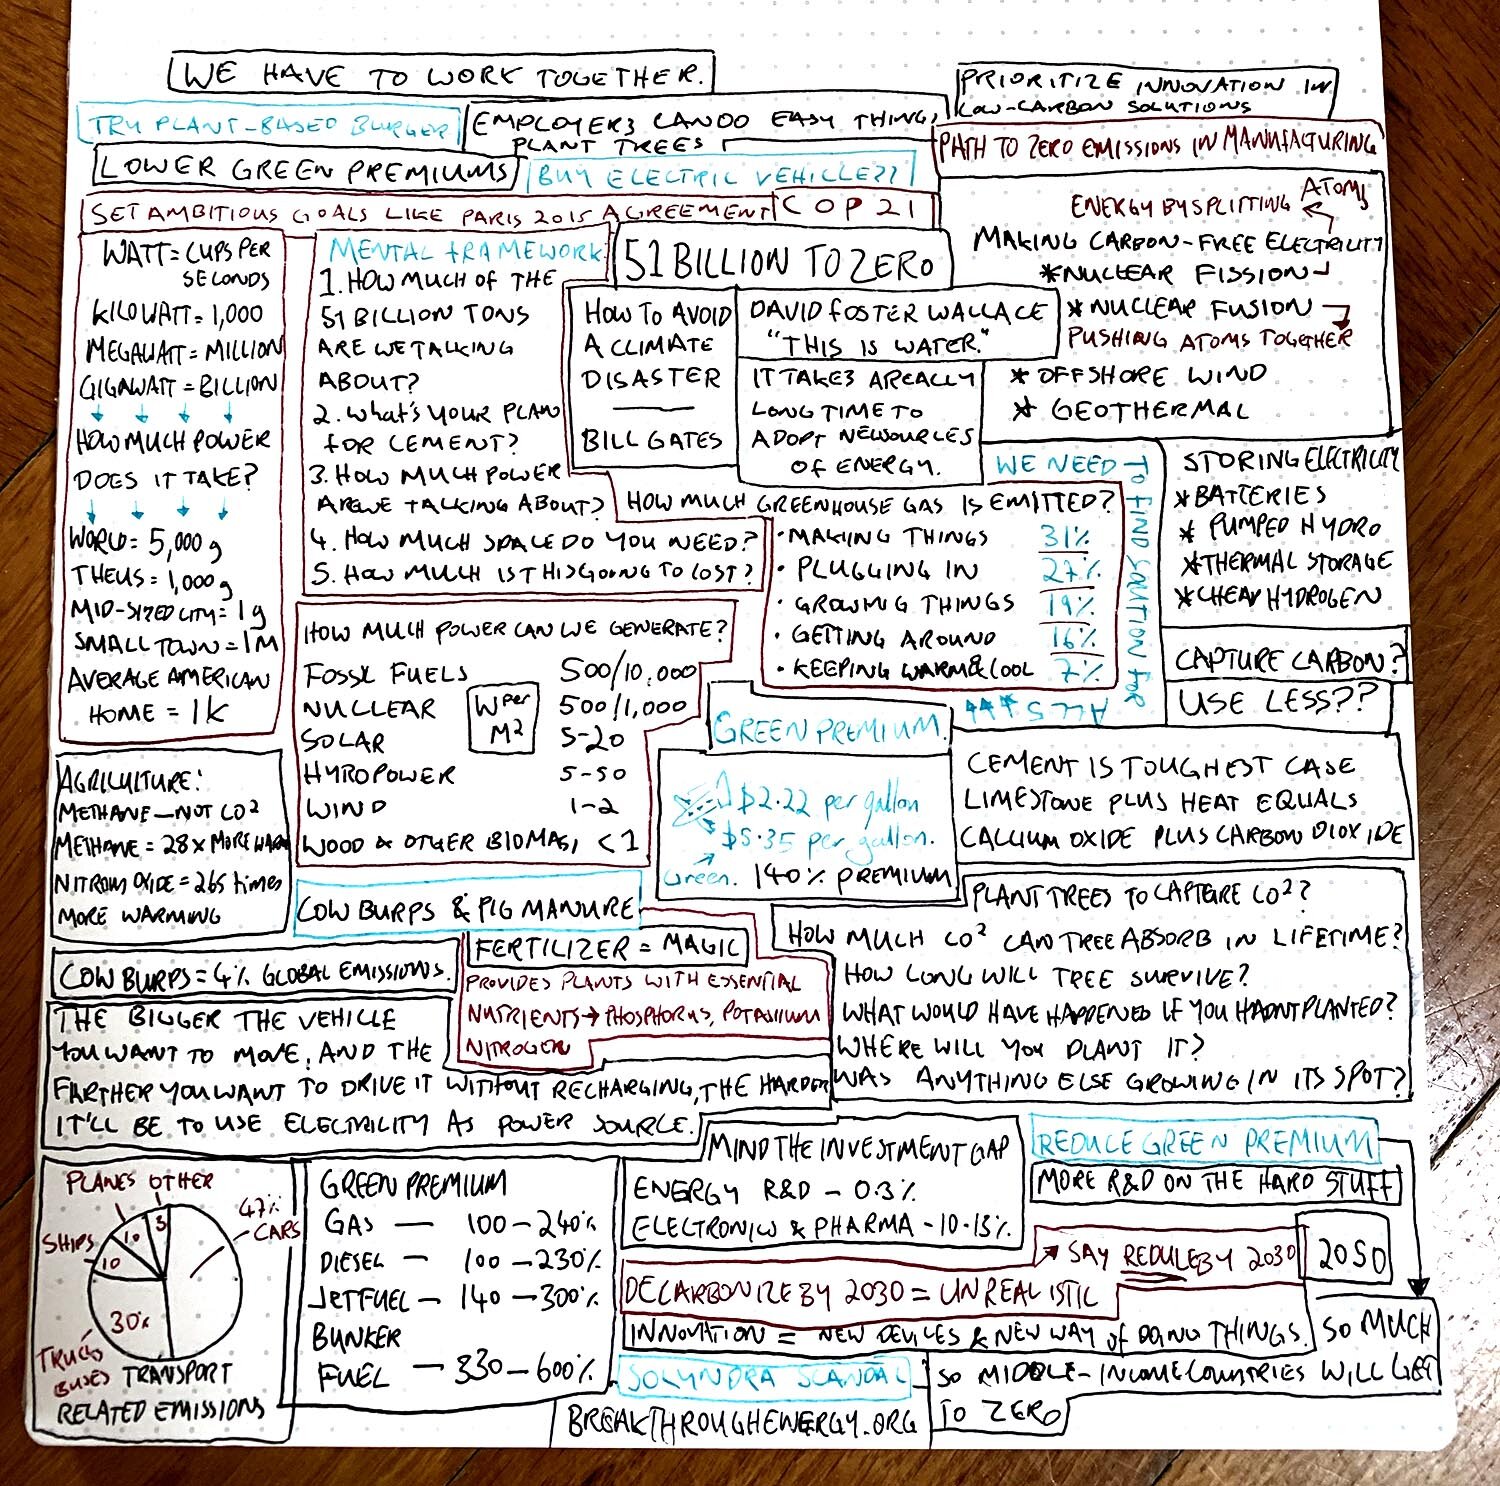 WE HAVE TO WORK TOGETHER.
PRIORITIZE INNOVATION IN
LOW-CARBON SOLUTIONS
TRY PLANT-BASED BURGER
EMPLOYERS CAN DO EASY THINGS
PLANT TREES
PATH TO ZERO EMISSIONS IN MANUFACTURING
LOWER GREEN PREMIUMS
BUY ELECTRIC VEHICLE??
SET AMBITIOUS GOALS LIKE PARIS 2015 AGREEMENT
COP 21
WATT = CUPS PER
SECONDS
KILOWATT = 1,000
MEGAWATT = MILLION
GIGAWATT = BILLION
HOW MUCH POWER
DOES IT TAKE?
WORLD = 5,000 g
= 1,000 g
MID-SIZED CITY = 1 g
SMALL TOWN = 1M
AVERAGE AMERICAN
HOME = 1K
MENTAL FRAMEWORK
1. HOW MUCH OF THE
51 BILLION TONS
ARE WE TALKING
ABOUT?
2. WHAT'S YOUR PLAN
FOR CEMENT?
3. HOW MUCH POWER
ARE WE TALKING ABOUT?
4. HOW MUCH SPACE DO YOU NEED?
5. HOW MUCH IS THIS GOING TO COST?
51 BILLION TO ZERO
HOW TO AVOID
A CLIMATE
DISASTER
BILL GATES
DAVID FOSTER WALLACE
"THIS IS WATER."
IT TAKES A REALLY
LONG TIME TO
ADOPT NEW SOURCES
OF ENERGY.
ENERGY BY SPLITTING ATOMS
MAKING CARBON-FREE ELECTRICITY
* NUCLEAR FISSION
* NUCLEAR FUSION
PUSHING ATOMS TOGETHER
* OFFSHORE WIND
* GEOTHERMAL
WE NEED
TO FIND SOLUTION FOR
ALL 5 ***
HOW MUCH GREENHOUSE GAS IS EMITTED?
• MAKING THINGS 31%
• PLUGGING IN 27%
• GROWING THINGS 19%
• GETTING AROUND 16%
• KEEPING WARM & COOL 7%
STORING ELECTRICITY
* BATTERIES
* PUMPED HYDRO
* THERMAL STORAGE
* CHEAP HYDROGEN
CAPTURE CARBON?
USE LESS??
HOW MUCH POWER CAN WE GENERATE?
FOSSIL FUELS 500/10,000
NUCLEAR 500/1,000
SOLAR 5-20
HYROPOWER 5-50
WIND 1-2
WOOD & OTHER BIOMASS <1
W PER
M²
GREEN PREMIUM.
$2.22 per gallon
$5.35 per gallon.
Green. 140% PREMIUM
CEMENT IS TOUGHEST CASE
LIMESTONE PLUS HEAT EQUALS
CALCIUM OXIDE PLUS CARBON DIOXIDE
AGRICULTURE:
METHANE — NOT CO²
METHANE = 28 x MORE WARM
NITROUS OXIDE = 265 times
MORE WARMING
COW BURPS & PIG MANURE
COW BURPS = 4% GLOBAL EMISSIONS.
FERTILIZER = MAGIC
PROVIDES PLANTS WITH ESSENTIAL
NUTRIENTS → PHOSPHORUS, POTASSIUM
NITROGEN
PLANT TREES TO CAPTURE CO²?
HOW MUCH CO² CAN TREE ABSORB IN LIFETIME?
HOW LONG WILL TREE SURVIVE?
WHAT WOULD HAVE HAPPENED IF YOU HADNT PLANTED?
WHERE WILL YOU PLANT IT?
WAS ANYTHING ELSE GROWING IN ITS SPOT?
THE BIGGER THE VEHICLE
YOU WANT TO MOVE, AND THE
FARTHER YOU WANT TO DRIVE IT WITHOUT RECHARGING, THE HARDER
IT'LL BE TO USE ELECTRICITY AS POWER SOURCE.
PLANES OTHER
47%
CARS
SHIPS
10 10 3
30%
TRUCKS
BUSES TRANSPORT
RELATED EMISSIONS
GREEN PREMIUM
GAS — 100-240%
DIESEL — 100-230%
JETFUEL — 140-300%
BUNKER
FUEL — 330-600%
MIND THE INVESTMENT GAP
ENERGY R&D - 0.3%
ELECTRONICS & PHARMA - 10-13%
REDUCE GREEN PREMIUM
MORE R&D ON THE HARD STUFF
SAY REDUCE BY 2030
2050
DECARBONIZE BY 2030 = UNREALISTIC
INNOVATION = NEW DEVICES & NEW WAY OF DOING THINGS.
SO MUCH
SO MIDDLE-INCOME COUNTRIES WILL GET
TO ZERO
SOLYNDRA SCANDAL
BREAKTHROUGHENERGY.ORG